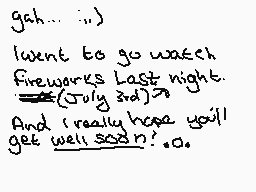 gah... :,,)
I went to go watch
fireworks last night.
(July 3rd)↗
And i really hope you'll
get well soon! .o.